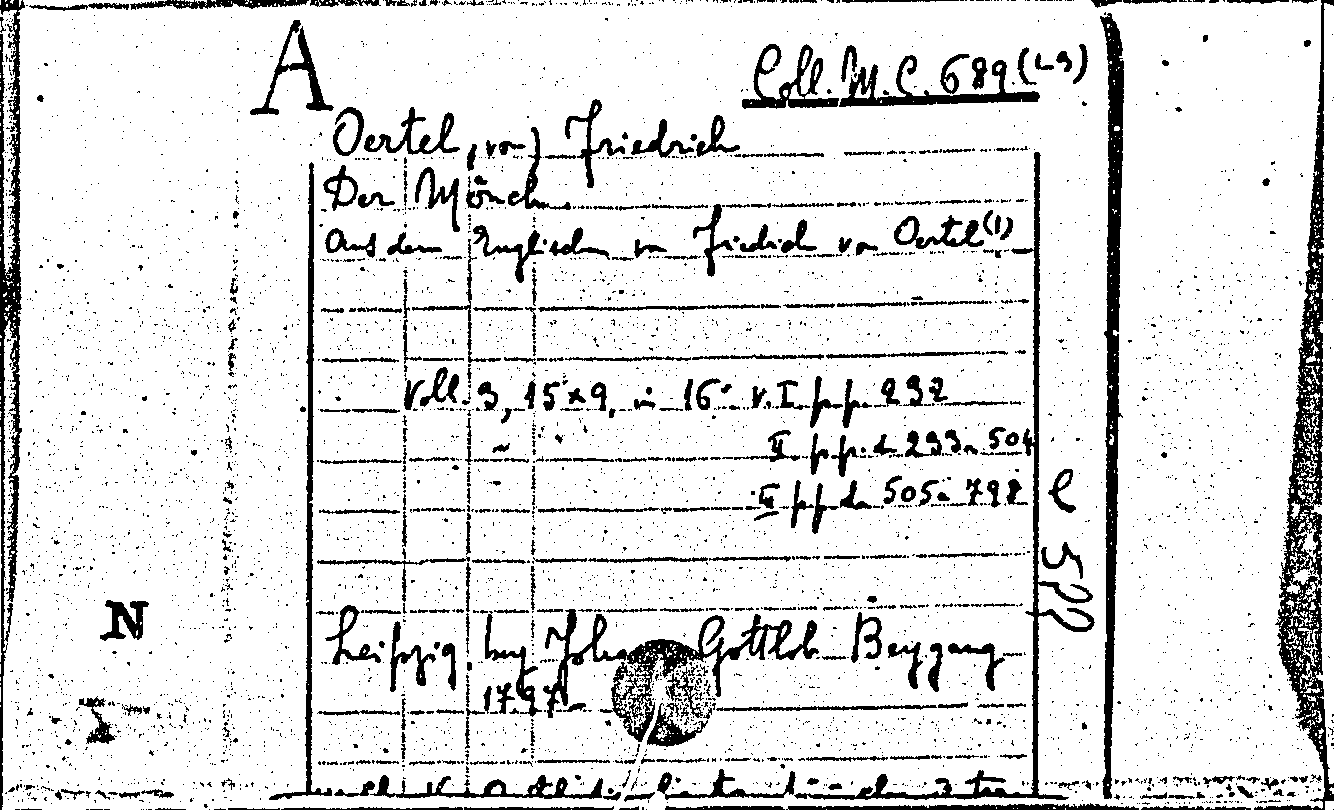 A
Coll. M. C. 689 (L-9)
Oertel, von) Friedrich
Der Mönch.
Aus dem Englischen von Friedrich von Oertel (1)
Voll. 3, 15 x 9, in 16° v. I pp. 232
II pp. da 233 a 504
III pp da 505 a 798
e 5pp
Leipzig bey Johann Gottlob Beygang
1797
N